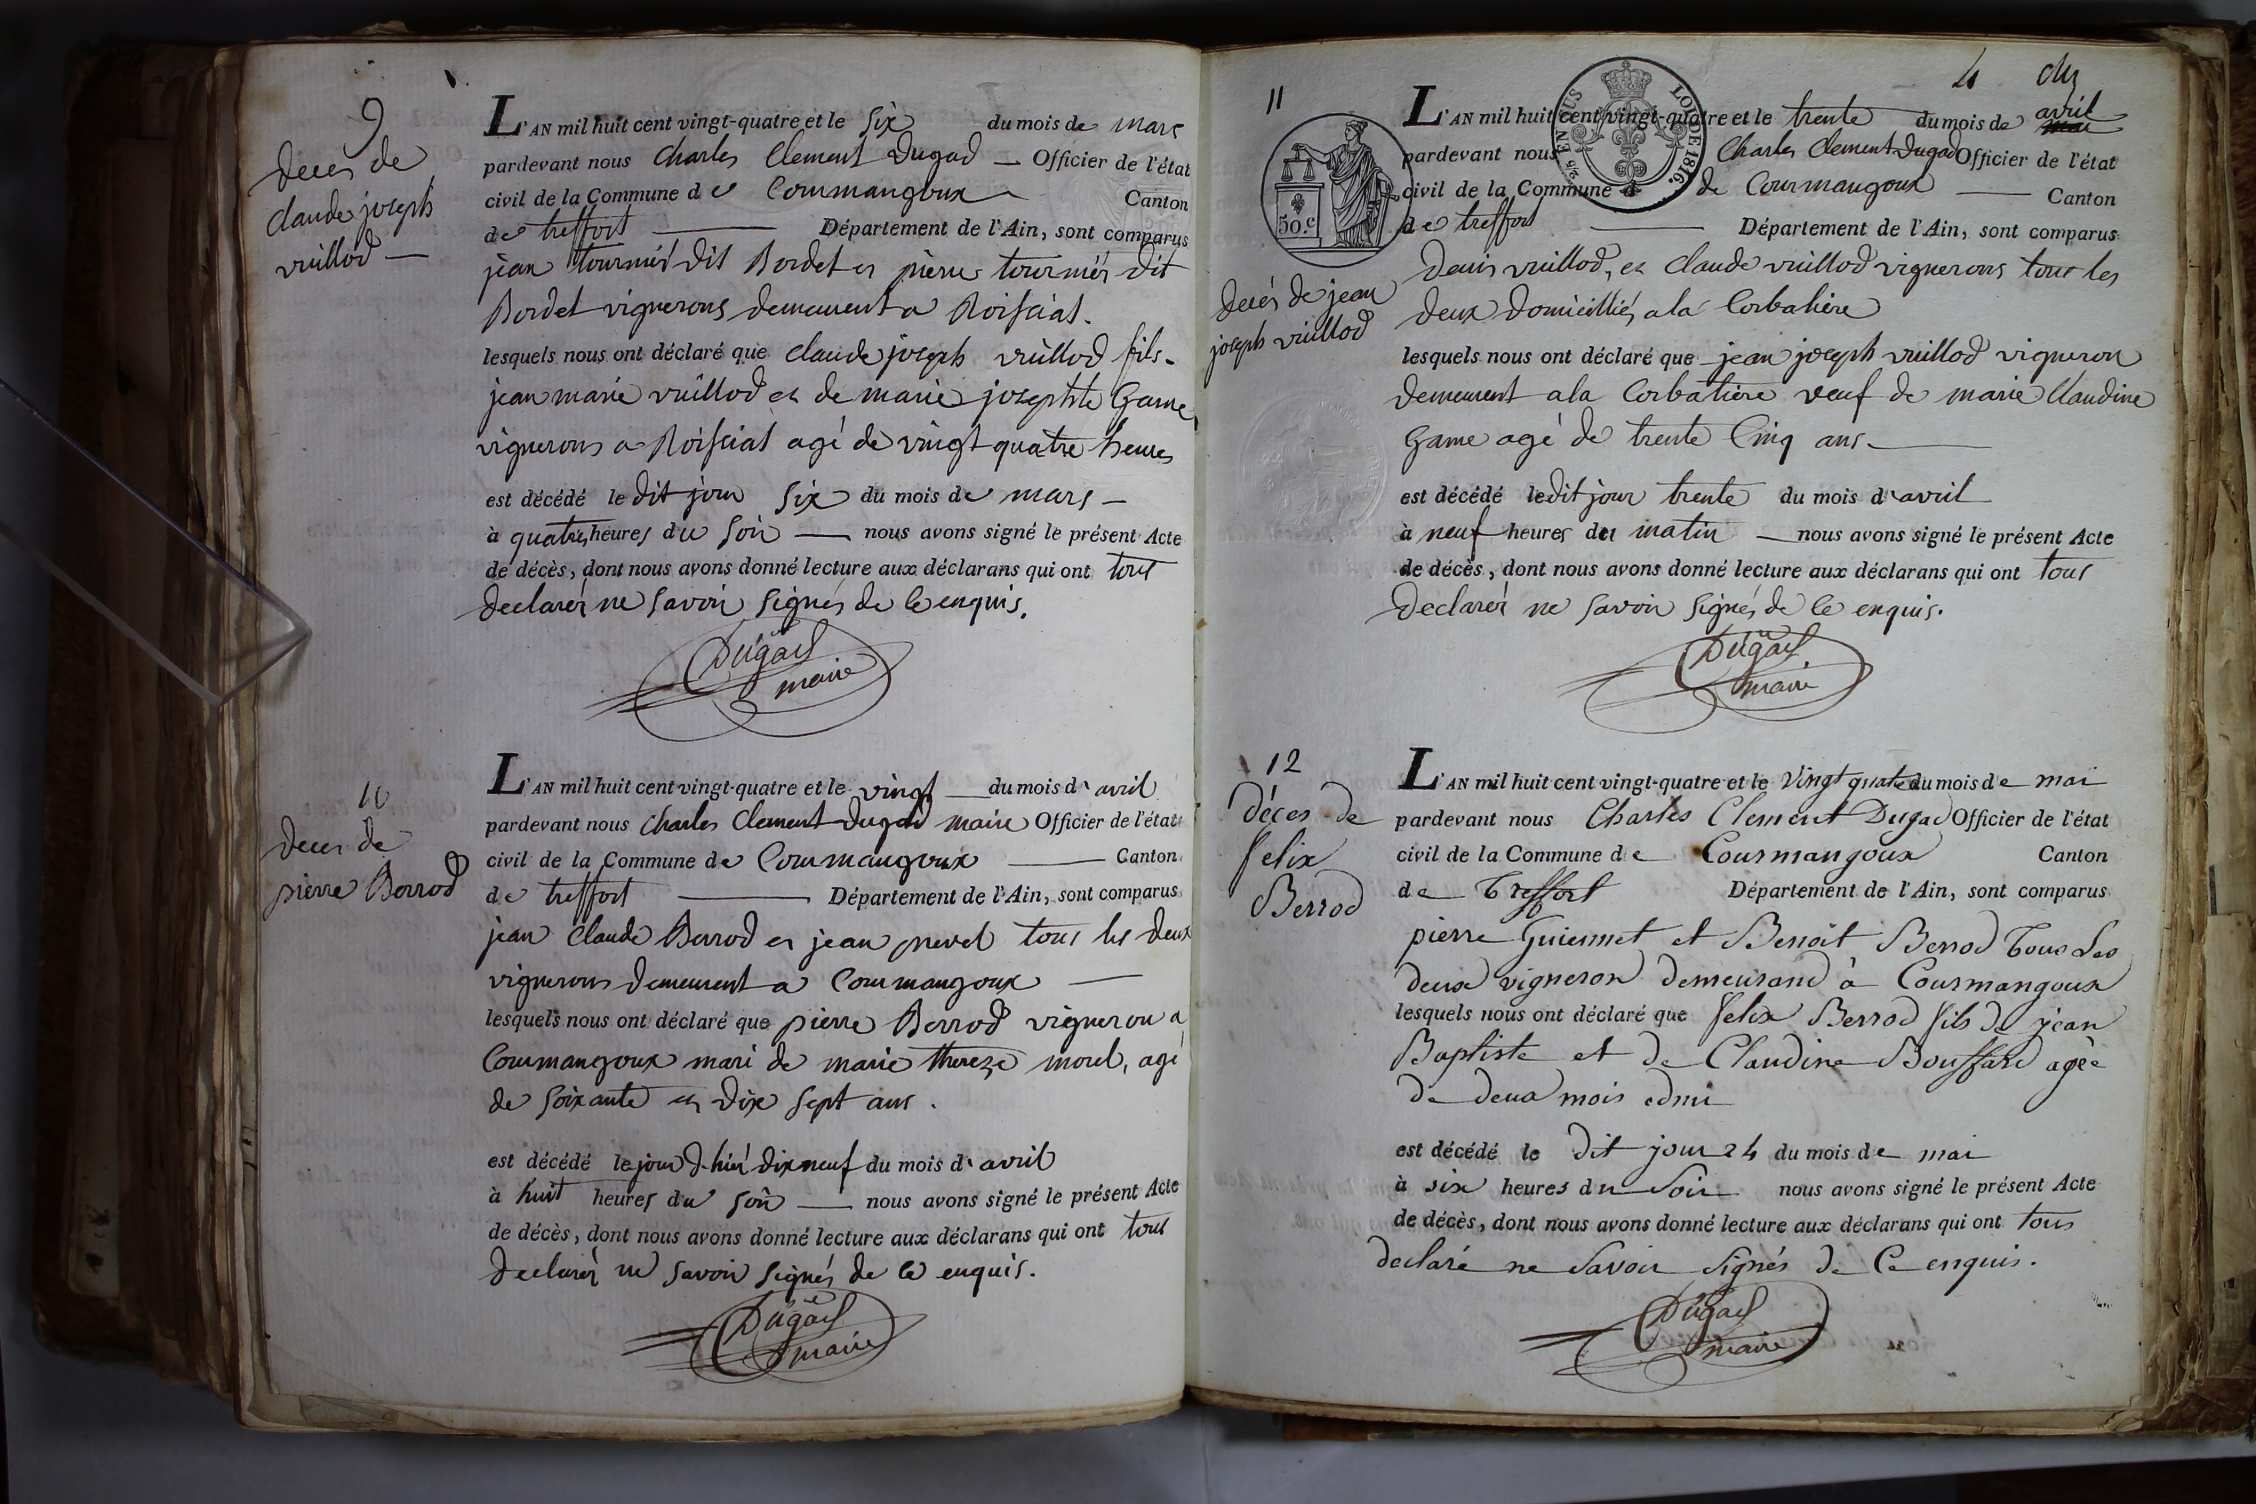 9
Deces de
Claude joseph
vuillod
L'AN mil huit cent vingt-quatre et le six du mois de mars
pardevant nous Charles Clement Dugad Officier de l'état
civil de la Commune de Courmangoux Canton
de treffort Département de l'Ain, sont comparus
jean tournier dit Bordet et pierre tournier dit
Bordet vignerons demeurent a Roissiat.
lesquels nous ont déclaré que claude joseph vuillod fils
jean marie vuillod et de marie josephte Game
vignerons a Roissiat agé de vingt quatre heures
est décédé le dit jour six du mois de mars
à quatre heures du soir nous avons signé le présent Acte
de décès, dont nous avons donné lecture aux déclarans qui ont tous
declarér ne savoir signés de ce enquis.
Dugad
maire
10
Deces de
pierre Berrod
L'AN mil huit cent vingt-quatre et le vingt du mois d'avril
pardevant nous Charles Clement Dugad maire Officier de l'état
civil de la Commune de Courmangoux Canton
de treffort Département de l'Ain, sont comparus
jean Claude Berrod et jean prevel tous les deux
vignerons demeurent a Courmangoux
lesquels nous ont déclaré que pierre Berrod vigneron a
Courmangoux mari de marie thereze morel, agé
de soixante et dix sept ans.
est décédé le jour d'hiér dix neuf du mois d'avril
à huit heures du soir nous avons signé le présent Acte
de décès, dont nous avons donné lecture aux déclarans qui ont tous
declarér ne savoir signés de ce enquis.
Dugad
maire
4
11
LOI DE 1816.
50.c
Decés de jean
joseph vuillod
L'AN mil huit cent vingt-quatre et le trente du mois de avril
pardevant nous Charles Clement Dugad Officier de l'état
civil de la Commune de de Courmangoux Canton
de treffort Département de l'Ain, sont comparus
Denis vuillod, et Claude vuillod vignerons tous les
deux Domicilliés a la Corbatière
lesquels nous ont déclaré que jean joseph vuillod vigneron
demeurent a la Corbatiere veuf de marie Claudine
Game agé de trente Cinq ans
est décédé le dit jour trente du mois d'avril
à neuf heures du matin nous avons signé le présent Acte
de décès, dont nous avons donné lecture aux déclarans qui ont tous
declarér ne savoir signés de ce enquis.
Dugad
maire
12
Déces de
felix
Berrod
L'AN mil huit cent vingt-quatre et le vingt quatre du mois de mai
pardevant nous Charles Clement Dugad Officier de l'état
civil de la Commune de Courmangoux Canton
de Treffort Département de l'Ain, sont comparus
pierre Guiennet et Benoit Berrod Tous Les
deux vigneron demeurand à Courmangoux
lesquels nous ont déclaré que felix Berrod fils de jean
Baptiste et de Claudine Bouffard agée
de deux mois edmi
est décédé le dit jour 24 du mois de mai
à six heures du soir nous avons signé le présent Acte
de décès, dont nous avons donné lecture aux déclarans qui ont tous
declaré ne savoir signés de Ce enquis.
Dugad
maire